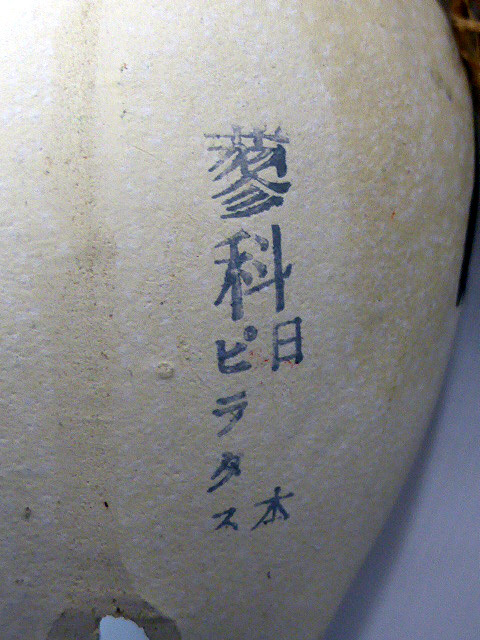 蓼科
日本
ピラタス